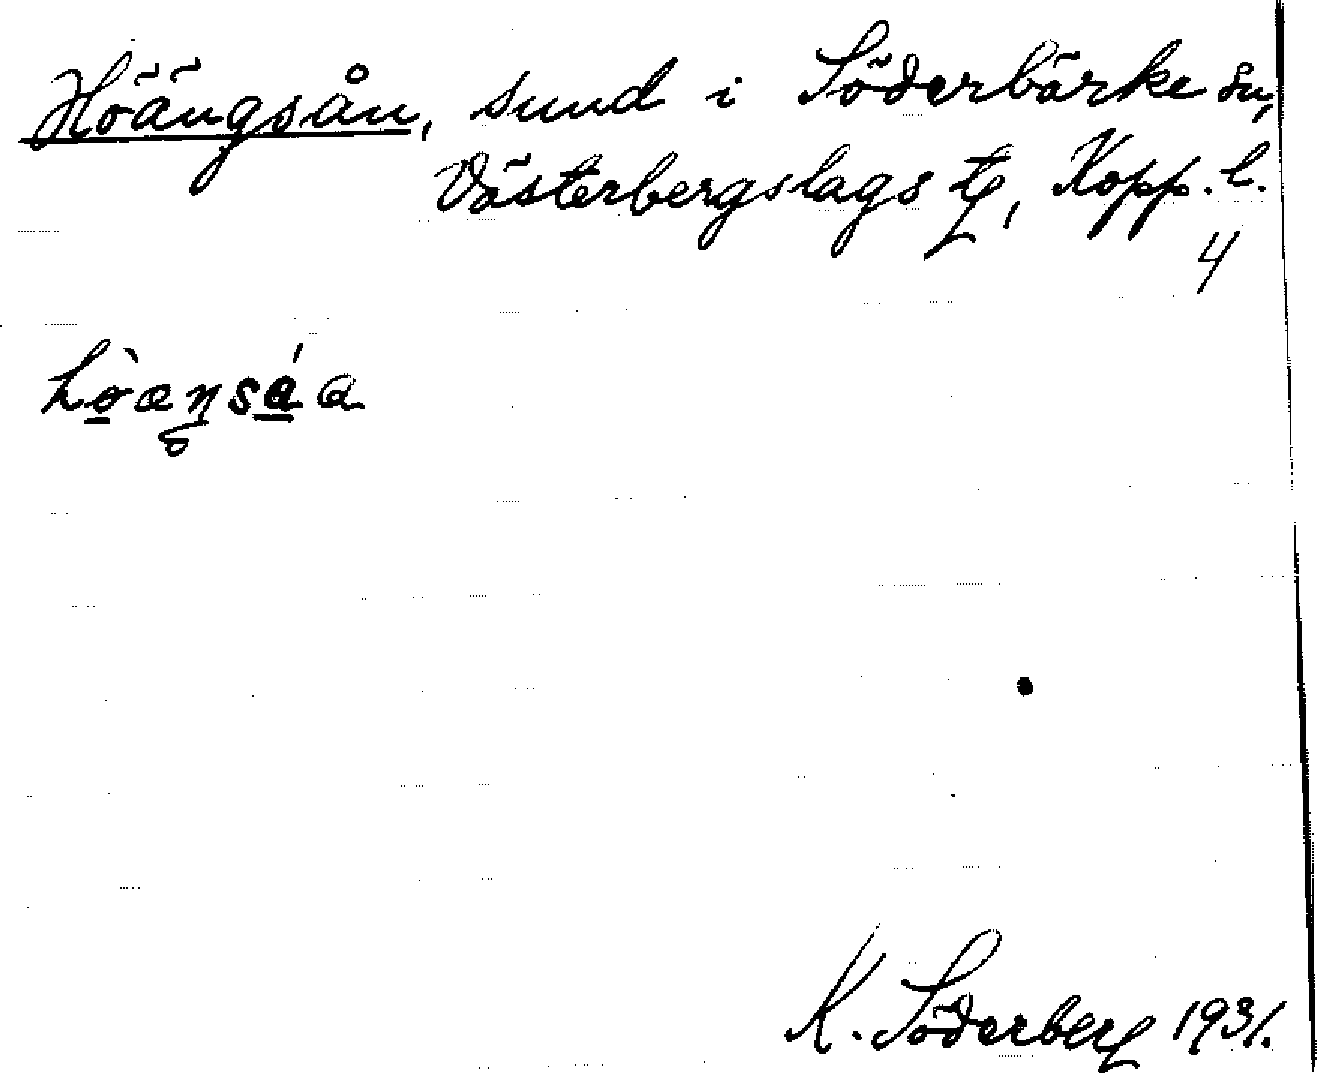 Höängsån, sund i Söderbärke sn,
Västerbergslags tg, Kopp. l.
4
K. Söderberg 1931.